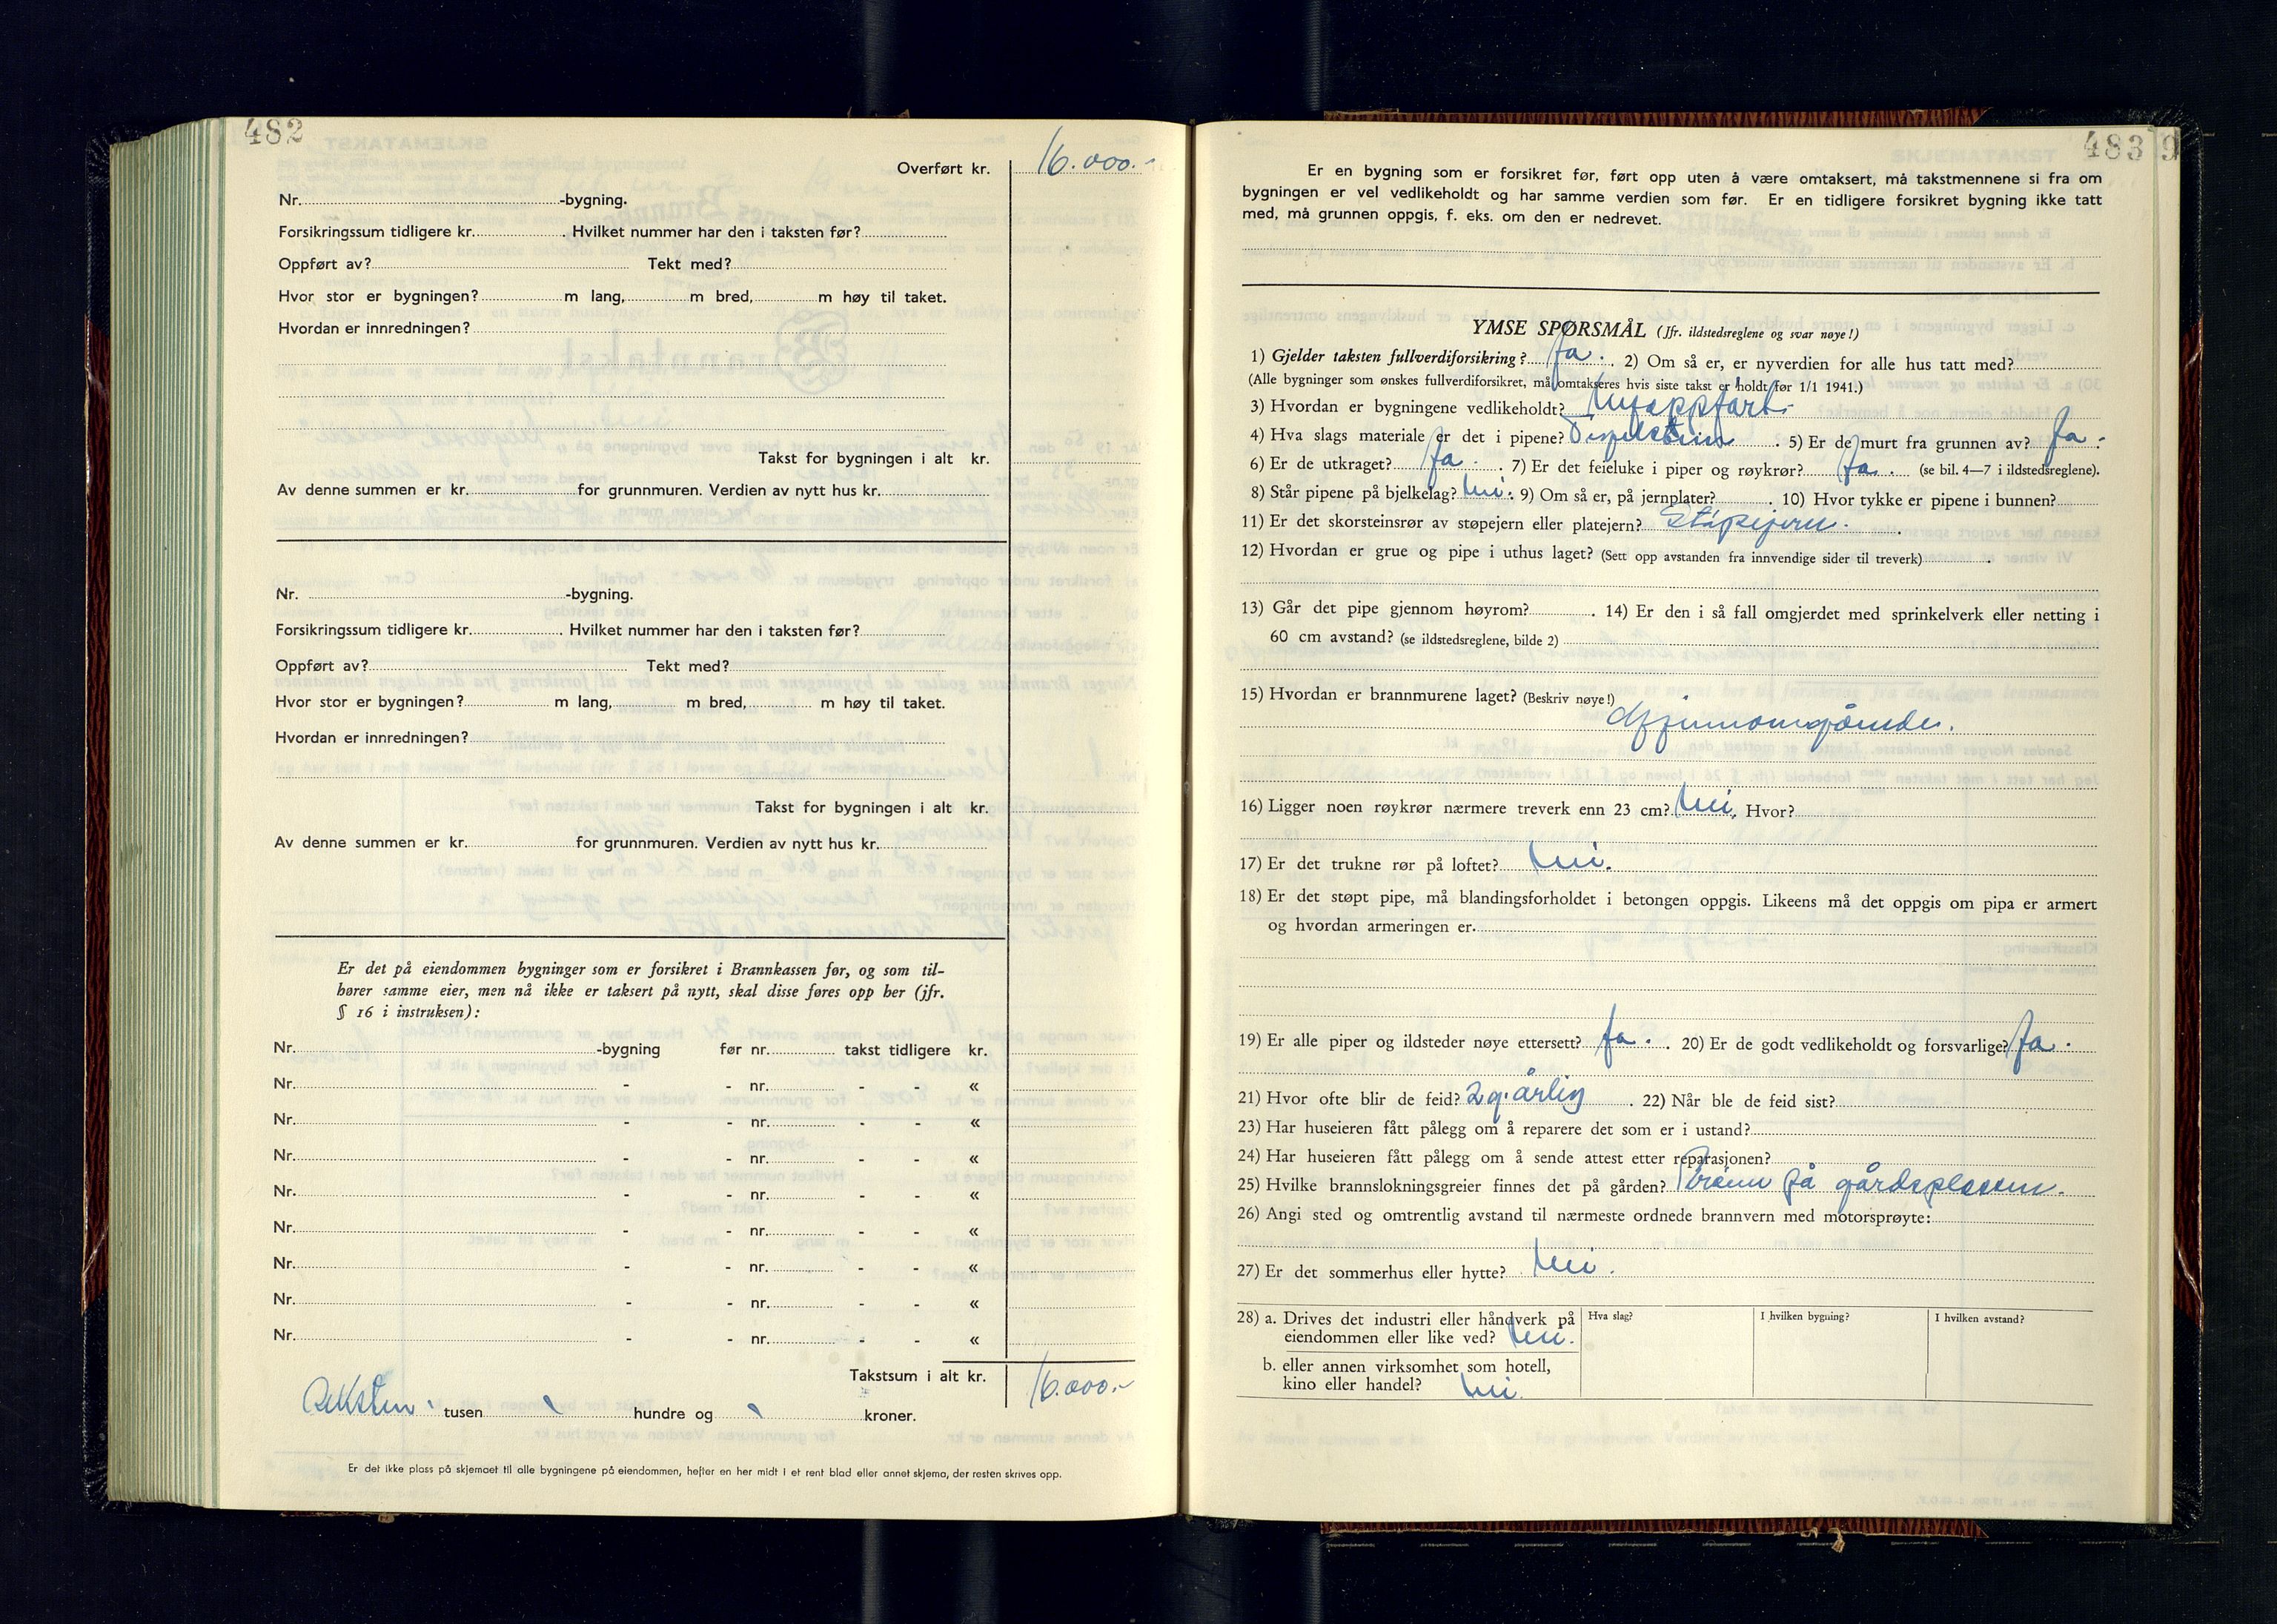 482
Overført kr. 16.000.-
Nr. -bygning.
Forsikringssum tidligere kr. . Hvilket nummer har den i taksten før?
Oppført av? Tekt med?
Hvor stor er bygningen? m lang, m bred, m høy til taket.
Hvordan er innredningen?
Takst for bygningen i alt kr.
Av denne summen er kr. for grunnmuren. Verdien av nytt hus kr.
Nr. -bygning.
Forsikringssum tidligere kr. . Hvilket nummer har den i taksten før?
Oppført av? Tekt med?
Hvor stor er bygningen? m lang, m bred, m høy til taket.
Hvordan er innredningen?
Takst for bygningen i alt kr.
Av denne summen er kr. for grunnmuren. Verdien av nytt hus kr.
Er det på eiendommen bygninger som er forsikret i Brannkassen før, og som til-
hører samme eier, men nå ikke er taksert på nytt, skal disse føres opp her (jfr.
§ 16 i instruksen):
Nr. -bygning før nr. takst tidligere kr.
Nr. - - nr. - - «
Nr. - - nr. - - «
Nr. - - nr. - - «
Nr. - - nr. - - «
Nr. - - nr. - - «
Nr. - - nr. - - «
Nr. - - nr. - - «
Nr. - - nr. - - «
Takstsum i alt kr. 16.000.-
Seksten tusen hundre og kroner.
Er det ikke plass på skjemaet til alle bygningene på eiendommen, hefter en her midt i et rent blad eller annet skjema, der resten skrives opp.
483 9
Er en bygning som er forsikret før, ført opp uten å være omtaksert, må takstmennene si fra om
bygningen er vel vedlikeholdt og har samme verdien som før. Er en tidligere forsikret bygning ikke tatt
med, må grunnen oppgis, f. eks. om den er nedrevet.
YMSE SPØRSMÅL (Jfr. ildstedsreglene og svar nøye!)
1) Gjelder taksten fullverdiforsikring? Ja. . 2) Om så er, er nyverdien for alle hus tatt med?
(Alle bygninger som ønskes fullverdiforsikret, må omtakseres hvis siste takst er holdt før 1/1 1941.)
3) Hvordan er bygningene vedlikeholdt? Nyoppført.
4) Hva slags materiale er det i pipene? Teiglstein . 5) Er de murt fra grunnen av? Ja.
6) Er de utkraget? Ja. . 7) Er det feieluke i piper og røykrør? Ja. (se bil. 4—7 i ildstedsreglene).
8) Står pipene på bjelkelag? Nei. 9) Om så er, på jernplater? . 10) Hvor tykke er pipene i bunnen?
11) Er det skorsteinsrør av støpejern eller platejern? Støpejern. .
12) Hvordan er grue og pipe i uthus laget? (Sett opp avstanden fra innvendige sider til treverk) .
13) Går det pipe gjennom høyrom? . 14) Er den i så fall omgjerdet med sprinkelverk eller netting i
60 cm avstand? (se ildstedsreglene, bilde 2)
15) Hvordan er brannmurene laget? (Beskriv nøye!)
Gjennomgående.
16) Ligger noen røykrør nærmere treverk enn 23 cm? Nei. Hvor?
17) Er det trukne rør på loftet? Nei.
18) Er det støpt pipe, må blandingsforholdet i betongen oppgis. Likeens må det oppgis om pipa er armert
og hvordan armeringen er.
19) Er alle piper og ildsteder nøye ettersett? Ja. . 20) Er de godt vedlikeholdt og forsvarlige? Ja.
21) Hvor ofte blir de feid? 2 g. årlig . 22) Når ble de feid sist?
23) Har huseieren fått pålegg om å reparere det som er i ustand?
24) Har huseieren fått pålegg om å sende attest etter reparasjonen?
25) Hvilke brannslokningsgreier finnes det på gården? Brønn på gårdsplassen.
26) Angi sted og omtrentlig avstand til nærmeste ordnede brannvern med motorsprøyte:
27) Er det sommerhus eller hytte? Nei.
28) a. Drives det industri eller håndverk på Hva slag? I hvilken bygning? I hvilken avstand?
eiendommen eller like ved? Nei.
b. eller annen virksomhet som hotell,
kino eller handel? Nei.